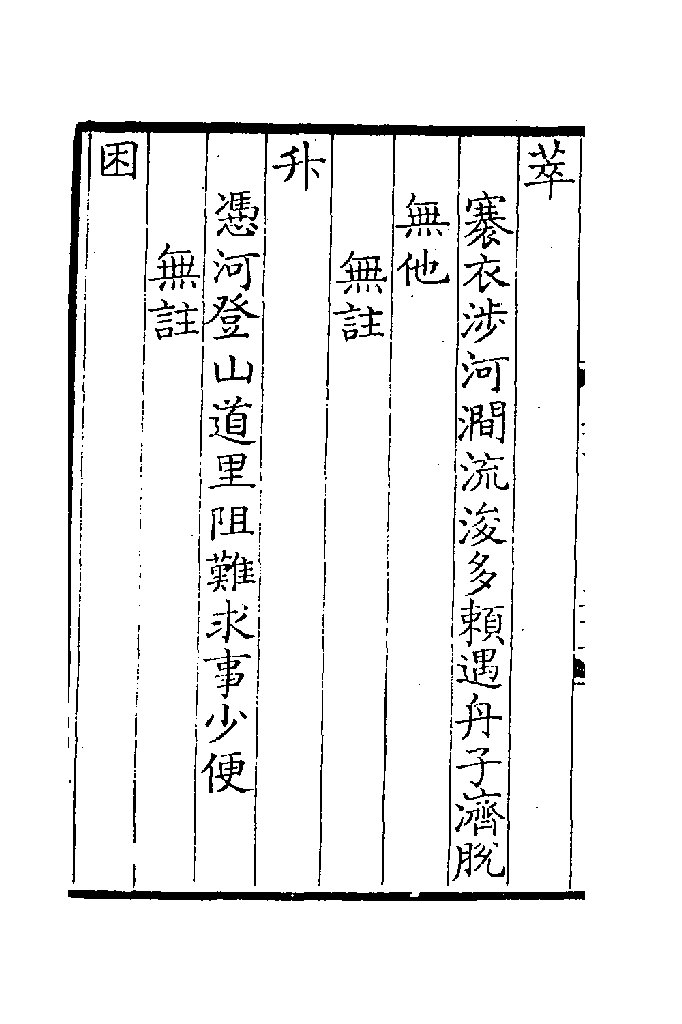 萃
褰衣涉河澗流浚多頼遇舟子濟脫
無他
無註
升
憑河登山道里阻難求事少便
無註
困